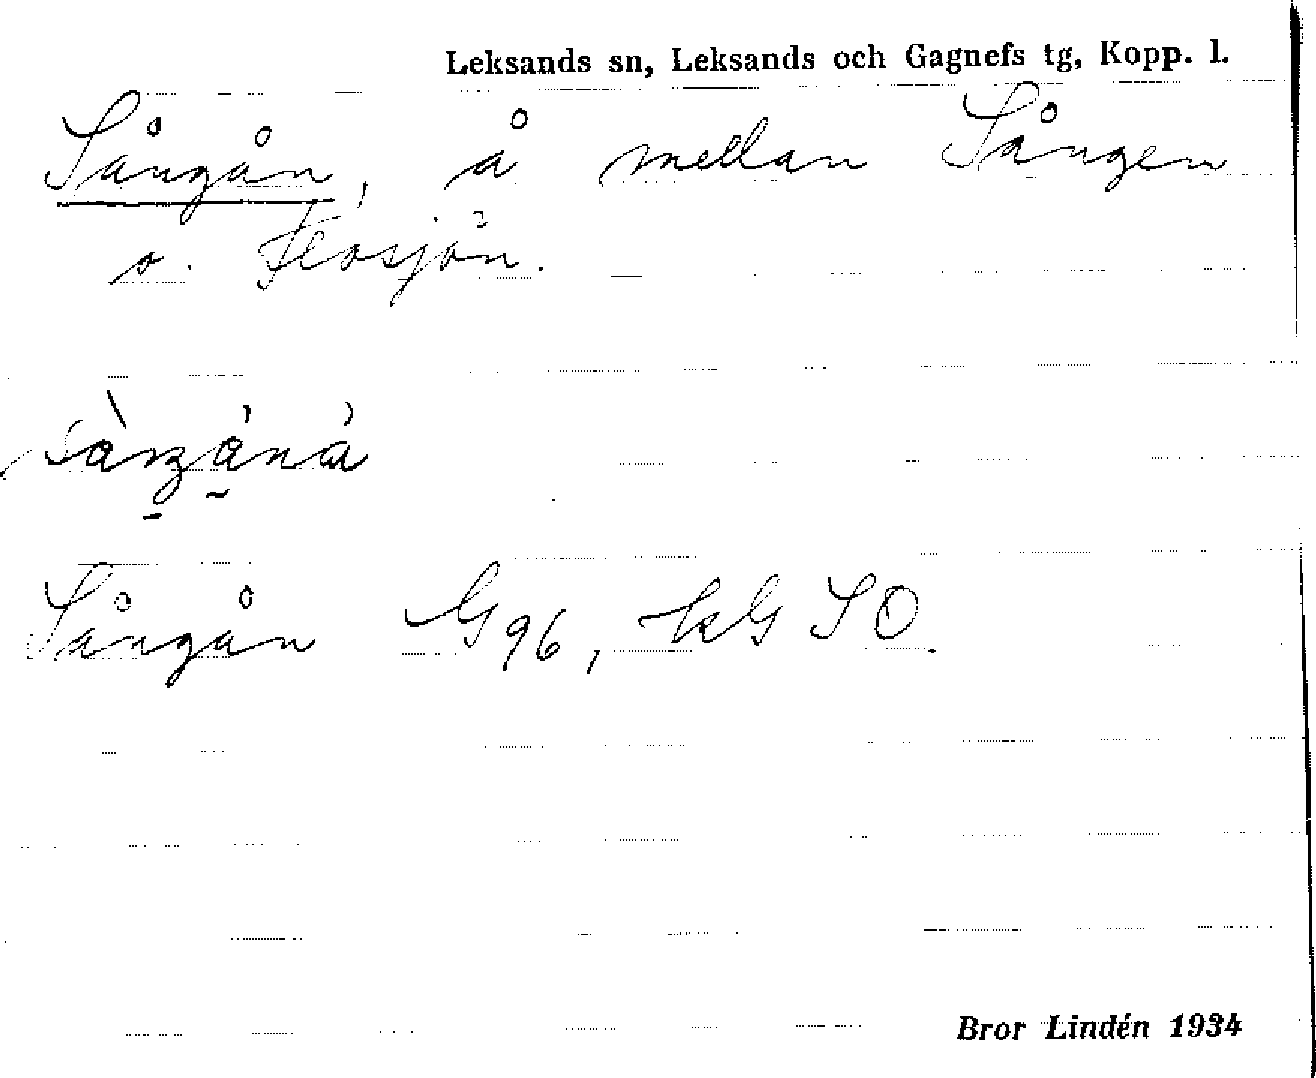 Leksands sn, Leksands och Gagnefs tg, Kopp. l.
Sångån, å mellan Sången
o. Flosjön.
Sångån G 96, kG SO.
Bror Lindén 1934